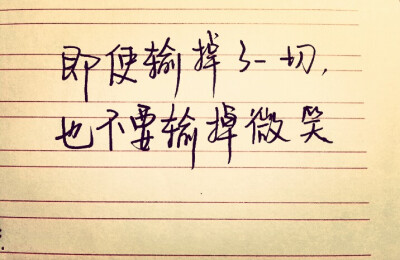 即使输掉了一切,
也不要输掉微笑